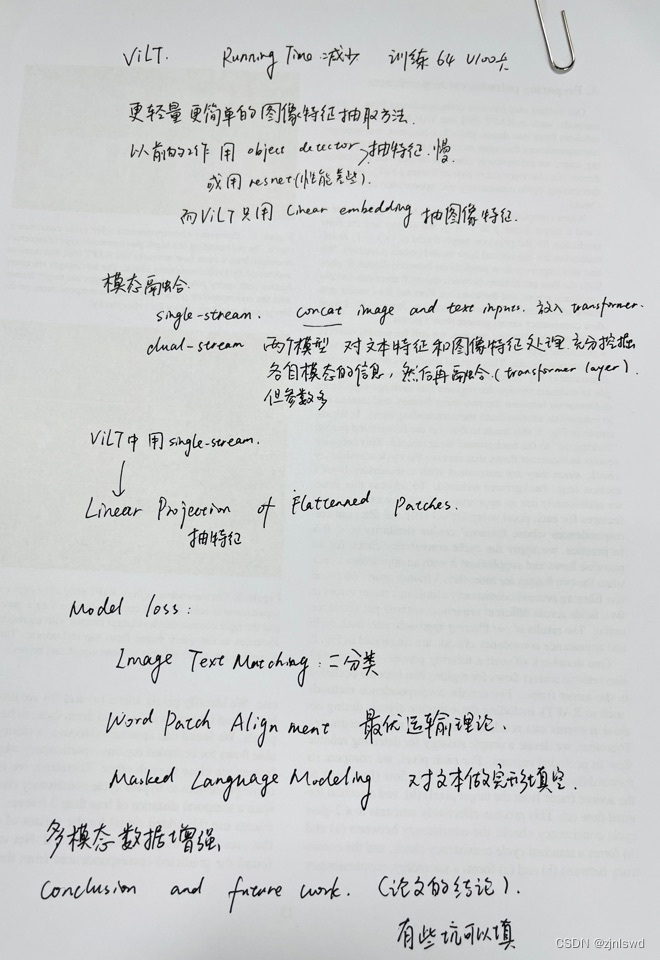 ViLT. Running Time 减少 训练 64 V100卡
更轻量更简单的图像特征抽取方法.
以前的工作 用 object detector 抽特征. 慢
或用 resnet (性能差些).
而ViLT只用 Linear embedding 抽图像特征.
模态融合.
single-stream. concat image and text inputs. 放入 transformer.
dual-stream 两个模型 对文本特征和图像特征处理. 充分挖掘
各自模态的信息, 然后再融合. (transformer layer).
但参数多
ViLT中用single-stream.
Linear Projection of Flattened Patches.
抽特征
Model loss:
Image Text Matching: 二分类
Word Patch Alignment 最优运输理论.
Masked Language Modeling 对文本做完形填空.
多模态数据增强
Conclusion and future work. (论文的结论).
有些坑可以填
CSDN @zjnlswd